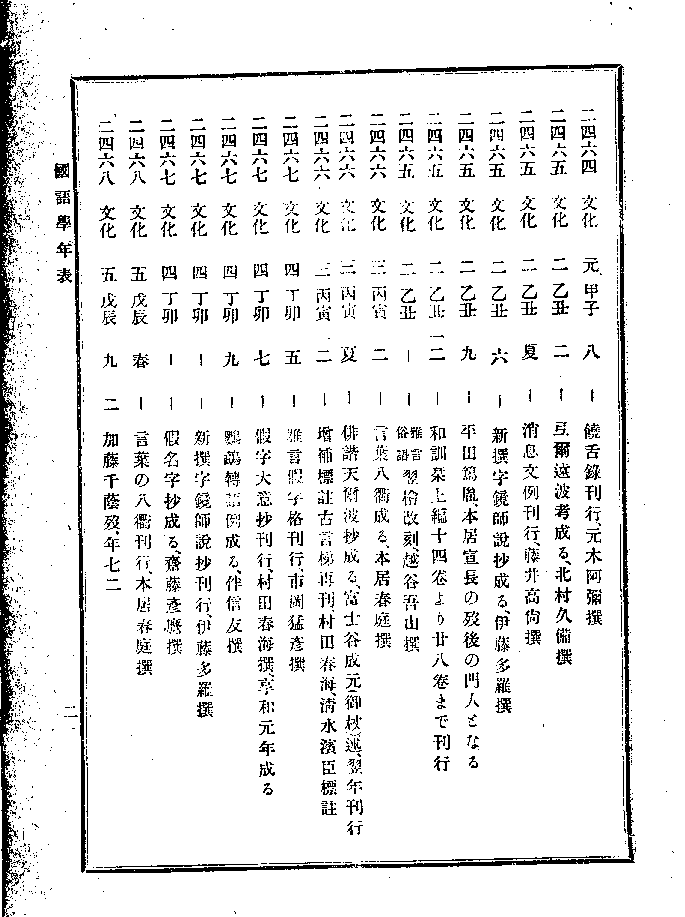 二四六四 文化 元 甲子 八 ー 饒舌錄刊行、元木阿彌撰
二四六五 文化 二 乙丑 二 ー 且爾遠波考成る、北村久備撰
二四六五 文化 二 乙丑 夏 ー 消息文例刊行、藤井高尙撰
二四六五 文化 二 乙丑 六 ー 新撰字鏡師說抄成る、伊藤多羅撰
二四六五 文化 二 乙丑 九 ー 平田篤胤、本居宣長の歿後の門人となる
二四六五 文化 二 乙丑 一二 ー 和訓栞上編十四卷より廿八卷まで刊行
二四六五 文化 二 乙丑 ー ー 雅言俗語翌檜改刻、越谷吾山撰
二四六六 文化 三 丙寅 二 ー 言葉八衢成る、本居春庭撰
二四六六 文化 三 丙寅 夏 ー 俳諧天爾波抄成る、富士谷成元(御杖)述、翌年刊行
二四六六 文化 三 丙寅 一二 ー 增補標註古言梯再刊村田春海、淸水濱臣標註
二四六七 文化 四 丁卯 五 ー 雅言假字格刊行、市岡猛彥撰
二四六七 文化 四 丁卯 七 ー 假字大意抄刊行、村田春海撰、享和元年成る
二四六七 文化 四 丁卯 九 ー 鸚鵡轉語例成る、伴信友撰
二四六七 文化 四 丁卯 ー ー 新撰字鏡師說抄刊行、伊藤多羅撰
二四六七 文化 四 丁卯 ー ー 假名字抄成る、齋藤彥麿撰
二四六八 文化 五 戊辰 春 ー 言葉の八衢刊行、本居春庭撰
二四六八 文化 五 戊辰 九 二 加藤千蔭歿、年七二
國語學年表
二